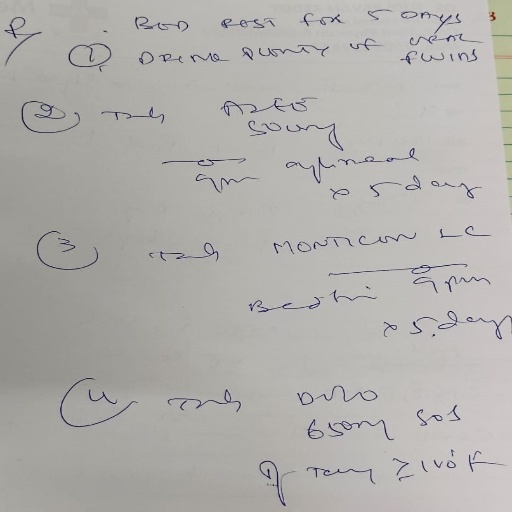 ℞ . BED REST FOR 5 DAYS
① DRINK PLENTY OF ORAL FLUIDS
② Tab AZEE
500mg
9pm after meal
x 5 days
③ Tab MONTICON LC
Bedtime 9pm
x 5 days
④ Tab DOLO
650mg SOS
If Temp ≥100 F